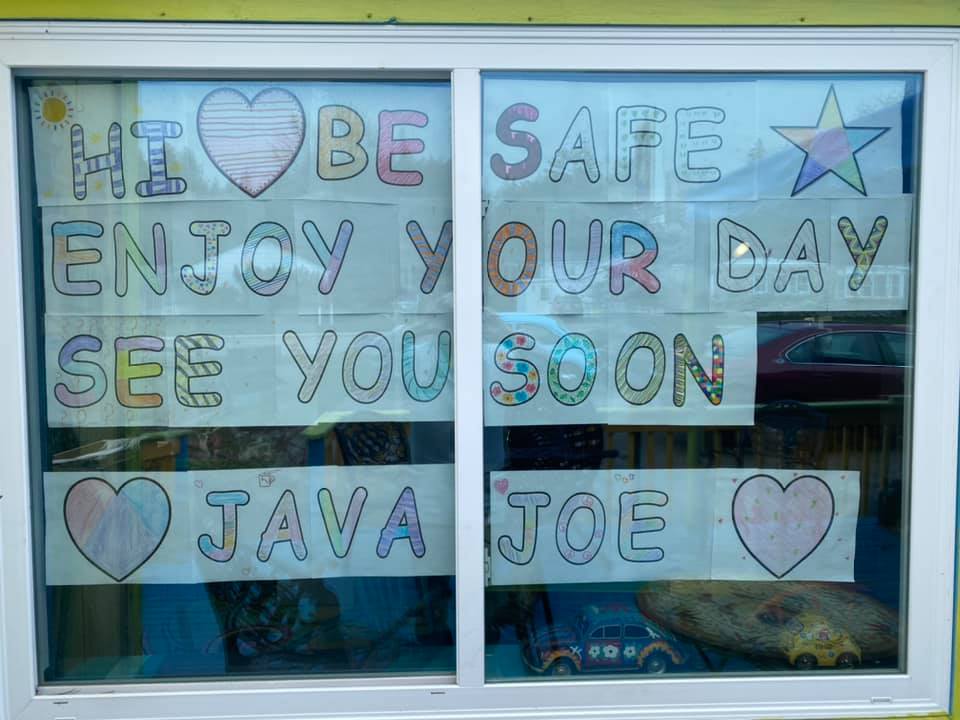 HI BE SAFE
ENJOY YOUR DAY
SEE YOU SOON
JAVA JOE